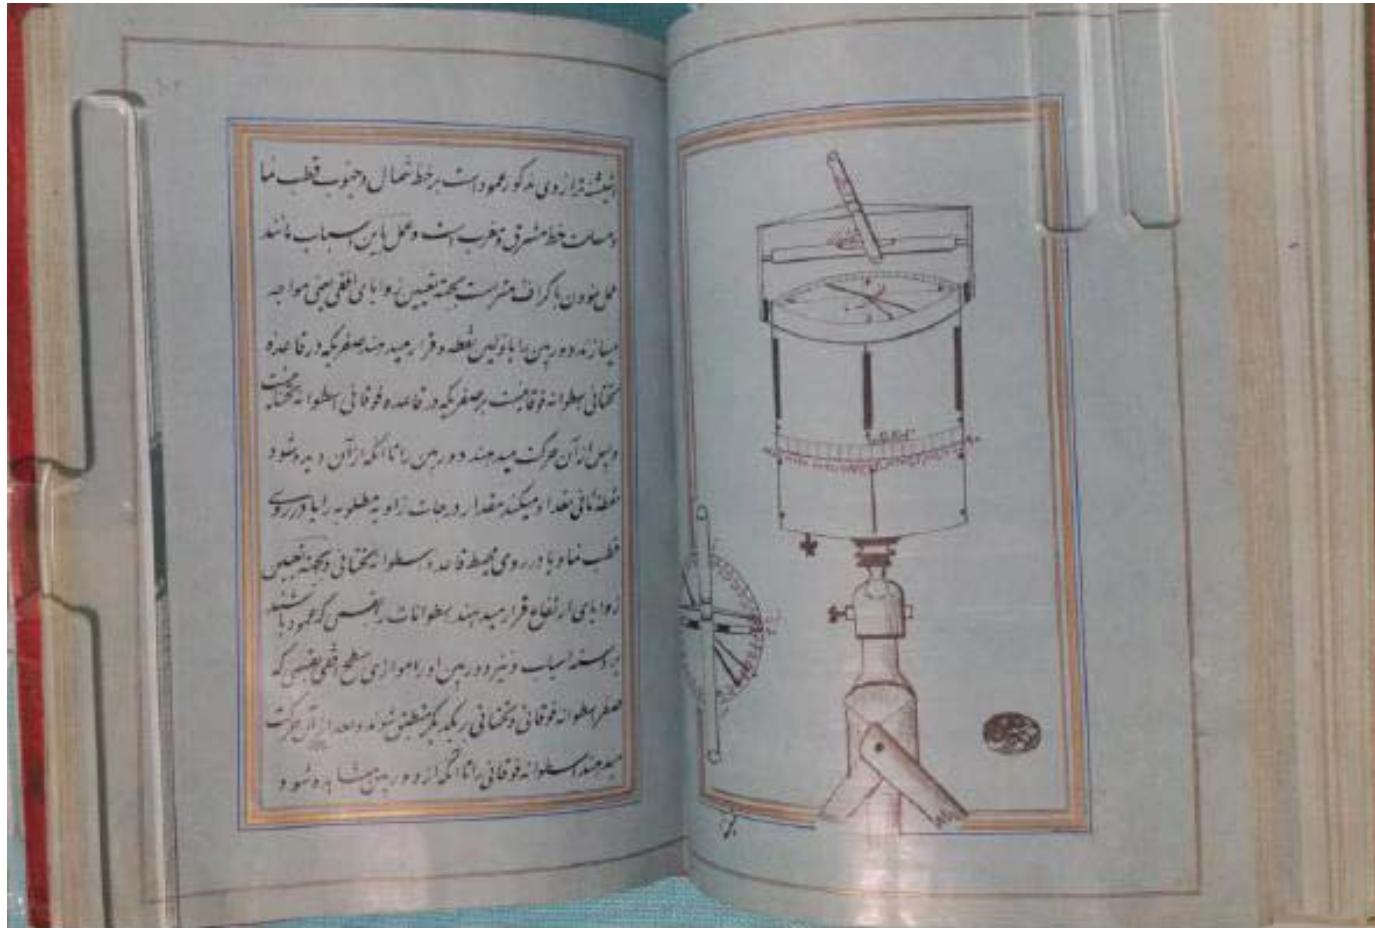 مذکور عمود است بر خط شمال و جنوب قطب نما
خط مشرق و مغرب است و عمل باین اسباب مانند
عمل نمودن با گرافمتر است بجهة تعیین زوایای افقی یعنی مواجه
میسازند دوربین را با اولین نقطه و قرار میدهند صفریکه در قاعده
تحتانی اسطوانه فوقانیست بر صفریکه در قاعده فوقانی اسطوانه تحتانیست
و پس از آن حرکت میدهند دوربین را تا آنکه از آن دیده شود
نقطه ثانی تعداد میکند مقدار درجات زاویه مطلوبه را یا در روی
قطب نما و یا در روی محیط قاعده اسطوانه تحتانی و بجهة تعیین
زوایای ارتفاع قرار میدهند اسطوانات را بقسمی که عمود باشند
بر دسته اسباب و نیز دوربین او را موازی سطح افقی بقسمی که
صفر اسطوانه فوقانی و تحتانی بر یکدیگر منطبق شوند و بعد از آن حرکت
میدهند اسطوانه فوقانی را تا آنکه از دوربین مشاهده شود